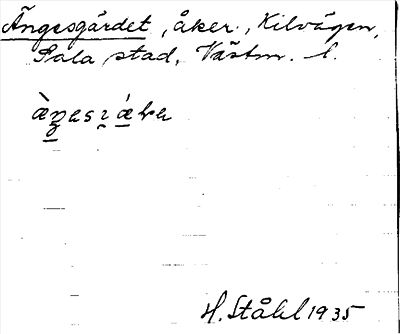 Ängesgärdet, åker., Kilvägen,
Sala stad, Västm. l.
H. Ståhl 1935